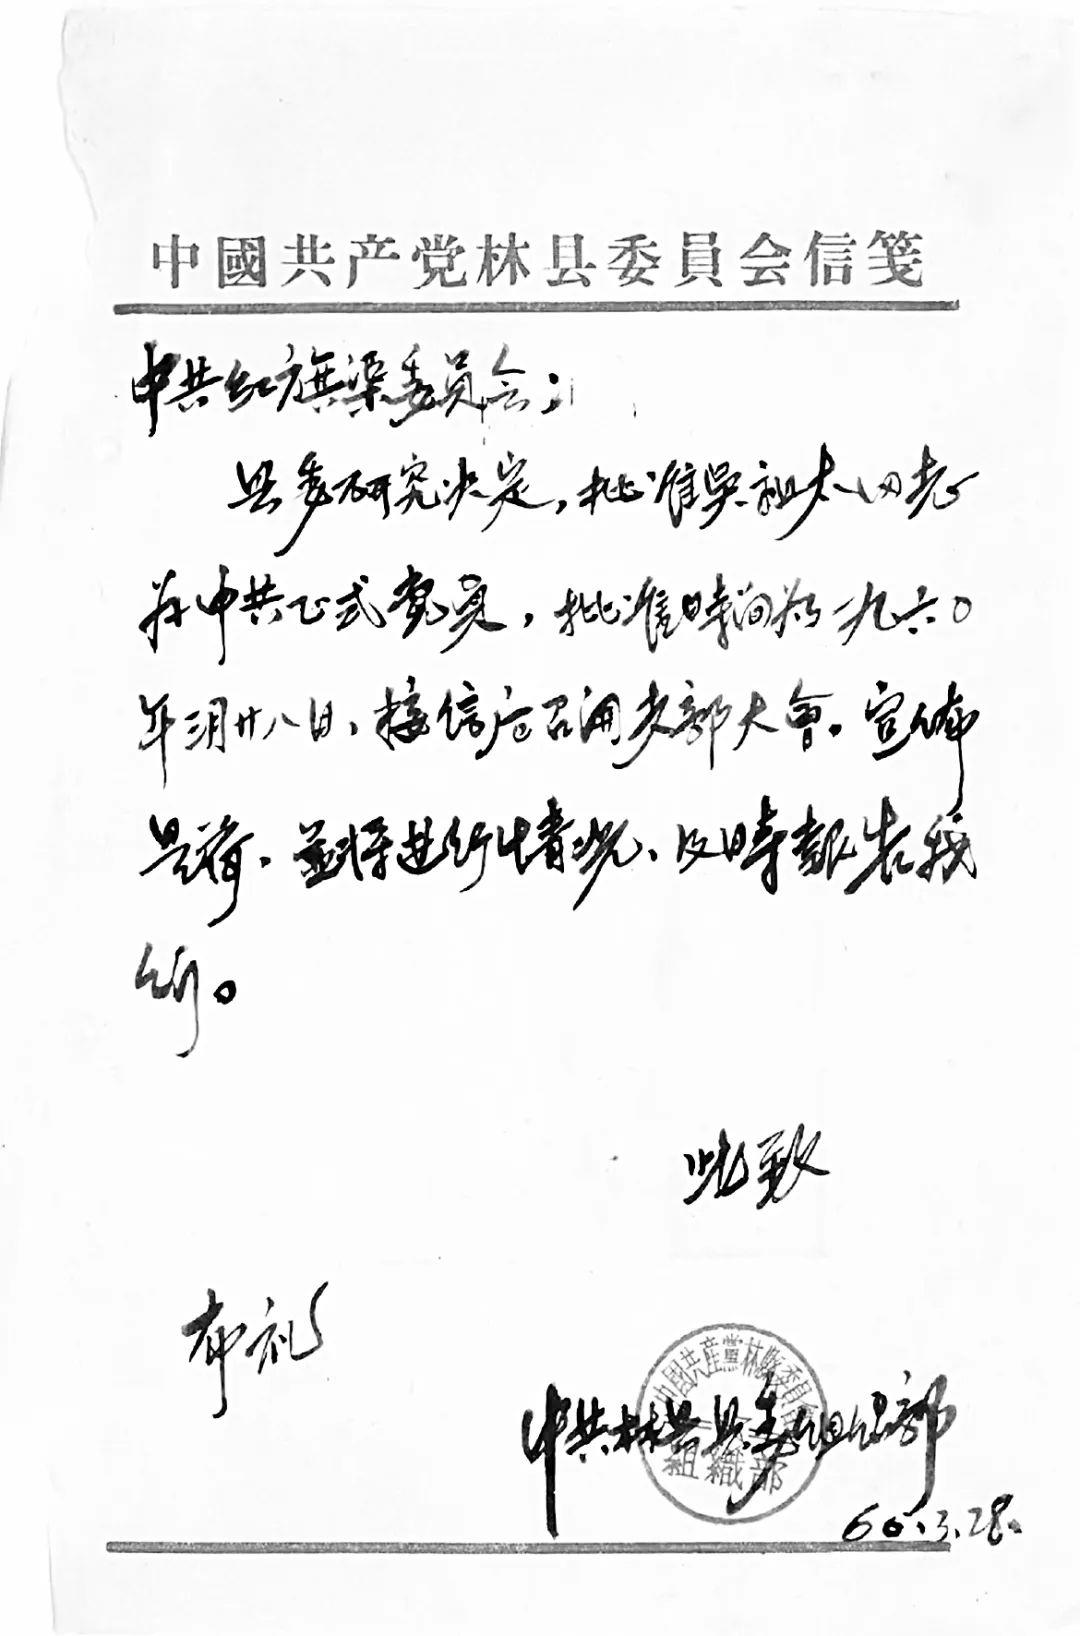 中國共产党林县委員会信箋
中共红旗渠委员会：
县委研究决定，批准吴祖太同志
为中共正式党员，批准時间为一九六〇
年三月廿八日、接信后召開支部大會。宣佈
是荷．並将进行情况、及時報告我
们。
此致
布礼
中國共產黨林縣委員會
組織部
中共林县县委组织部
60.3.28.